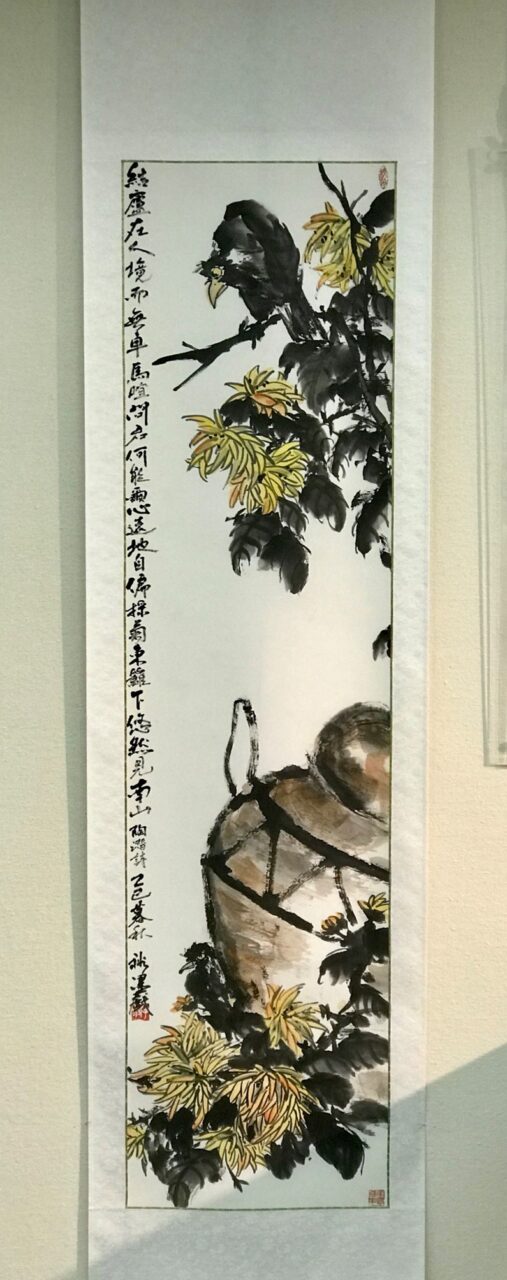 結廬在人境而無車馬喧問君何能爾心遠地自偏採菊東籬下悠然見南山 陶淵明詩 乙巳暮秋